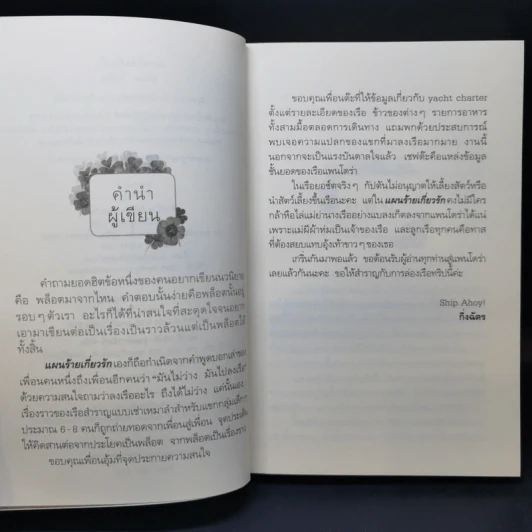 คำนำ
ผู้เขียน
คำถามยอดฮิตข้อหนึ่งของคนอยากเขียนนวนิยาย
คือ พล็อตมาจากไหน คำตอบนั้นง่ายคือพล็อตนั้นอยู่
รอบๆ ตัวเรา อะไรก็ได้ที่น่าสนใจที่สะดุดใจจนอยาก
เอามาเขียนต่อเป็นเรื่องเป็นราวล้วนแต่เป็นพล็อตได้
ทั้งสิ้น
แผนร้ายเกี่ยวรัก เองก็ถือกำเนิดจากคำพูดบอกเล่าของ
เพื่อนคนหนึ่งถึงเพื่อนอีกคนว่า “มันไม่ว่าง มันไปลงเรือ”
ด้วยความสนใจถามว่าลงเรืออะไร ถึงได้ไม่ว่าง แค่นั้นเอง
เรื่องราวของเรือสำราญแบบเช่าเหมาลำสำหรับแขกกลุ่มเล็กๆ
ประมาณ 6-8 คนก็ถูกถ่ายทอดจากเพื่อนสู่เพื่อน จุดประเด็น
ให้คิดสานต่อจากประโยคเป็นพล็อต จากพล็อตเป็นเรื่องราว
ขอบคุณเพื่อนอุ้มที่จุดประกายความสนใจ
ขอบคุณเพื่อนต๊ะที่ให้ข้อมูลเกี่ยวกับ yacht charter
ตั้งแต่รายละเอียดของเรือ ข้าวของต่างๆ รายการอาหาร
ทั้งสามมื้อตลอดการเดินทาง แถมพกด้วยประสบการณ์
พบเจอความแปลกของแขกที่มาลงเรือมากมาย งานนี้
นอกจากจะเป็นแรงบันดาลใจแล้ว เชฟต๊ะคือแหล่งข้อมูล
ชั้นยอดของเรือแพนโดร่า
ในเรือยอช์ตจริงๆ กัปตันไม่อนุญาตให้เลี้ยงสัตว์หรือ
นำสัตว์เลี้ยงขึ้นเรือนะคะ แต่ใน แผนร้ายเกี่ยวรัก คงไม่มีใคร
กล้าหือไล่แม่ย่านางเรืออย่างแบลงเก็ตลงจากแพนโดร่าได้แน่
เพราะแม่มีผ้าห่มเป็นเจ้าของเรือ และลูกเรือทุกคนคือทาส
ที่ต้องสยบแทบอุ้งเท้าขาวๆ ของเธอ
เกริ่นกันมาพอแล้ว ขอต้อนรับผู้อ่านทุกท่านสู่แพนโดร่า
เลยแล้วกันนะคะ ขอให้สำราญกับการล่องเรือทริปนี้ค่ะ
Ship Ahoy!
กิ่งฉัตร